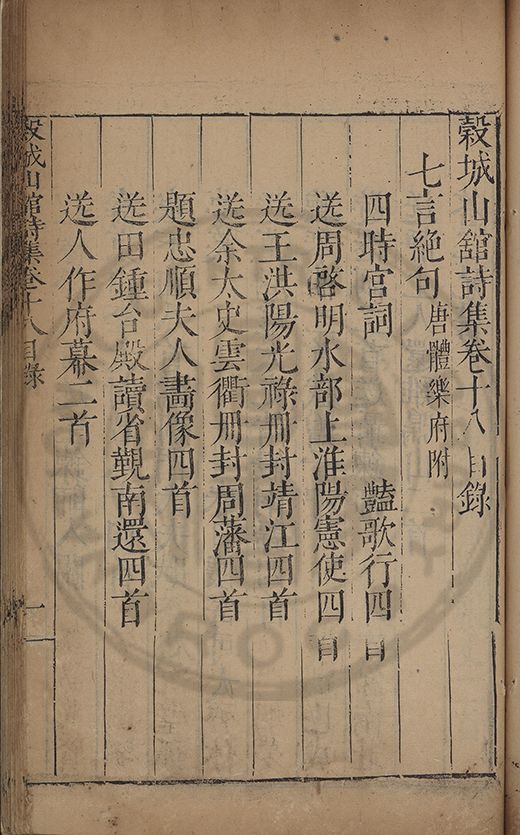 穀城山館詩集卷十八目錄
七言絕句 唐體樂府附
四時宮詞 豔歌行四首
送周啓明水部上淮陽憲使四首
送王洪陽光祿冊封靖江四首
送余大史雲衢冊封周藩四首
題忠順夫人畫像四首
送田鍾台殿讀省覲南還四首
送人作府幕二首
穀城山館詩集卷十八目錄
一